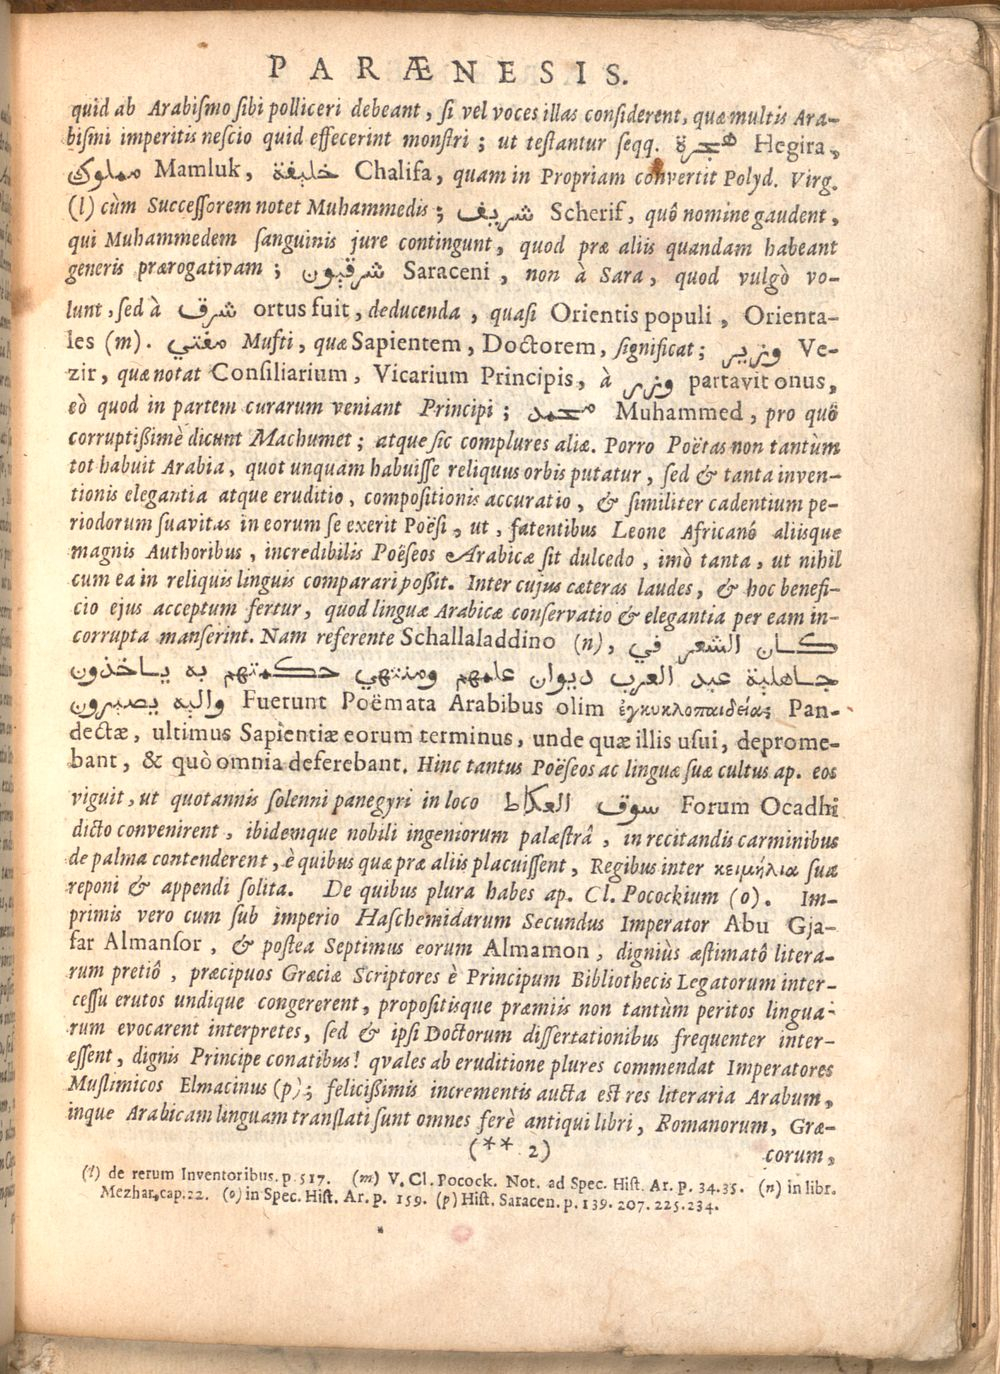 PARÆNESIS.
quid ab Arabiſmo ſibi polliceri debeant, ſi vel voces illas conſiderent, quæ multis Ara-
biſmi imperitis neſcio quid effecerint monſtri; ut teſtantur ſeqq. هجرة Hegira,
مملوك Mamluk, خليفة Chalifa, quam in Propriam convertit Polyd. Virg.
(l) cùm Succeſſorem notet Muhammedis; شريف Scherif, quô nomine gaudent,
qui Muhammedem ſanguinis jure contingunt, quod præ aliis quandam habeant
generis prærogativam; شرقيون Saraceni, non à Sara, quod vulgò vo-
lunt, ſed à شرق ortus fuit, deducenda, quaſi Orientis populi, Orienta-
les (m). مفتي Mufti, quæ Sapientem, Doctorem, ſignificat; وزير Ve-
zir, quæ notat Conſiliarium, Vicarium Principis, à وزر partavit onus,
eò quod in partem curarum veniant Principi; محمد Muhammed, pro quô
corruptiſſimè dicunt Machumet; atque ſic complures aliæ. Porro Poëtas non tantùm
tot habuit Arabia, quot unquam habuiſſe reliquus orbis putatur, ſed & tanta inven-
tionis elegantia atque eruditio, compoſitionis accuratio, & ſimiliter cadentium pe-
riodorum ſuavitas in eorum ſe exerit Poëſi, ut, fatentibus Leone Africanô aliisque
magnis Authoribus, incredibilis Poëſeos Arabicæ ſit dulcedo, imò tanta, ut nihil
cum ea in reliquis linguis comparari poſſit. Inter cujus cæteras laudes, & hoc benefi-
cio ejus acceptum fertur, quod linguæ Arabicæ conſervatio & elegantia per eam in-
corrupta manſerint. Nam referente Schallaladdino (n), كان الشعر في
جاهلية عبد العرب ديوان علمهم ومنتهي حكمتهم به ياخذون
واليه يصيرون Fuerunt Poëmata Arabibus olim ἐγκυκλοπαιδείας Pan-
dectæ, ultimus Sapientiæ eorum terminus, unde quæ illis uſui, deprome-
bant, & quò omnia deferebant. Hinc tantus Poëſeos ac linguæ ſuæ cultus ap. eos
viguit, ut quotannis ſolenni panegyri in loco سوق العكاظ Forum Ocadhi
dicto convenirent, ibidemque nobili ingeniorum palæſtrâ, in recitandis carminibus
de palma contenderent, è quibus quæ præ aliis placuiſſent, Regibus inter κειμήλια ſua
reponi & appendi ſolita. De quibus plura habes ap. Cl. Pocockium (o). Im-
primis vero cum ſub imperio Haſchemidarum Secundus Imperator Abu Gja-
far Almanſor, & poſtea Septimus eorum Almamon, digniùs æſtimatô litera-
rum pretiô, præcipuos Græciæ Scriptores è Principum Bibliothecis Legatorum inter-
ceſſu erutos undique congererent, propoſitisque præmiis non tantùm peritos lingua-
rum evocarent interpretes, ſed & ipſi Doctorum diſſertationibus frequenter inter-
eſſent, dignis Principe conatibus! qvales ab eruditione plures commendat Imperatores
Muſlimicos Elmacinus (p); feliciſſimis incrementis aucta eſt res literaria Arabum,
inque Arabicam linguam translati ſunt omnes ferè antiqui libri, Romanorum, Græ-
(** 2) corum,
(l) de rerum Inventoribus. p. 517. (m) V. Cl. Pocock. Not. ad Spec. Hiſt. Ar. p. 34.35. (n) in libr.
Mezhar, cap.22. (o) in Spec. Hiſt. Ar. p. 159. (p) Hiſt. Saracen. p. 139. 207. 225. 234.